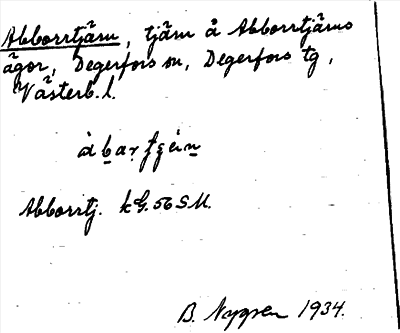 Abborrtjärn, tjärn å Abborrtjärns
ägor, Degerfors sn, Degerfors tg,
Västerb. l.
Abborrtj. kG. 56 SM.
B. Nygren 1934.